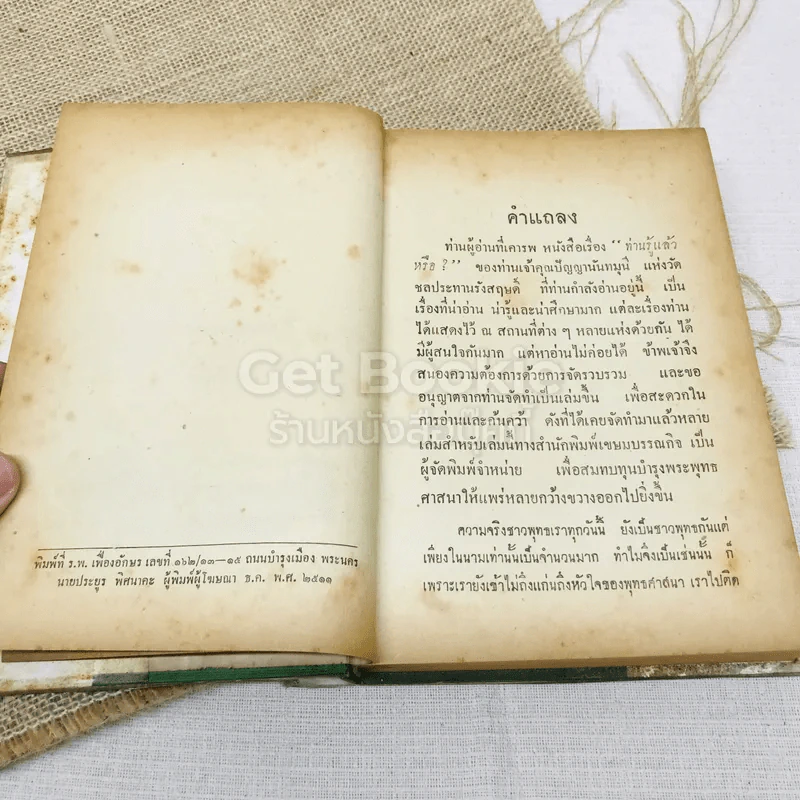 พิมพ์ที่ ร.พ. เฟื่องอักษร เลขที่ ๑๖๒/๑๓-๑๕ ถนนบำรุงเมือง พระนคร
นายประยูร พิศนาคะ ผู้พิมพ์ผู้โฆษณา ธ.ค. พ.ศ. ๒๕๑๑
คำแถลง
ท่านผู้อ่านที่เคารพ หนังสือเรื่อง “ท่านรู้แล้ว
หรือ ?” ของท่านเจ้าคุณปัญญานันทมุนี แห่งวัด
ชลประทานรังสฤษดิ์ ที่ท่านกำลังอ่านอยู่นี้ เป็น
เรื่องที่น่าอ่าน น่ารู้และน่าศึกษามาก แต่ละเรื่องท่าน
ได้แสดงไว้ ณ สถานที่ต่าง ๆ หลายแห่งด้วยกัน ได้
มีผู้สนใจกันมาก แต่หาอ่านไม่ค่อยได้ ข้าพเจ้าจึง
สนองความต้องการด้วยการจัดรวบรวม และขอ
อนุญาตจากท่านจัดทำเป็นเล่มขึ้น เพื่อสะดวกใน
การอ่านและค้นคว้า ดังที่ได้เคยจัดทำมาแล้วหลาย
เล่มสำหรับเล่มนี้ทางสำนักพิมพ์เขษมบรรณกิจ เป็น
ผู้จัดพิมพ์จำหน่าย เพื่อสมทบทุนบำรุงพระพุทธ
ศาสนาให้แพร่หลายกว้างขวางออกไปยิ่งขึ้น
ความจริงชาวพุทธเราทุกวันนี้ ยังเป็นชาวพุทธกันแต่
เพียงในนามเท่านั้นเป็นจำนวนมาก ทำไมจึงเป็นเช่นนั้น ก็
เพราะเรายังเข้าไม่ถึงแก่นถึงหัวใจของพุทธศาสนา เราไปติด
Get Bookie
ร้านหนังสือเก็ทบุ๊คกี้